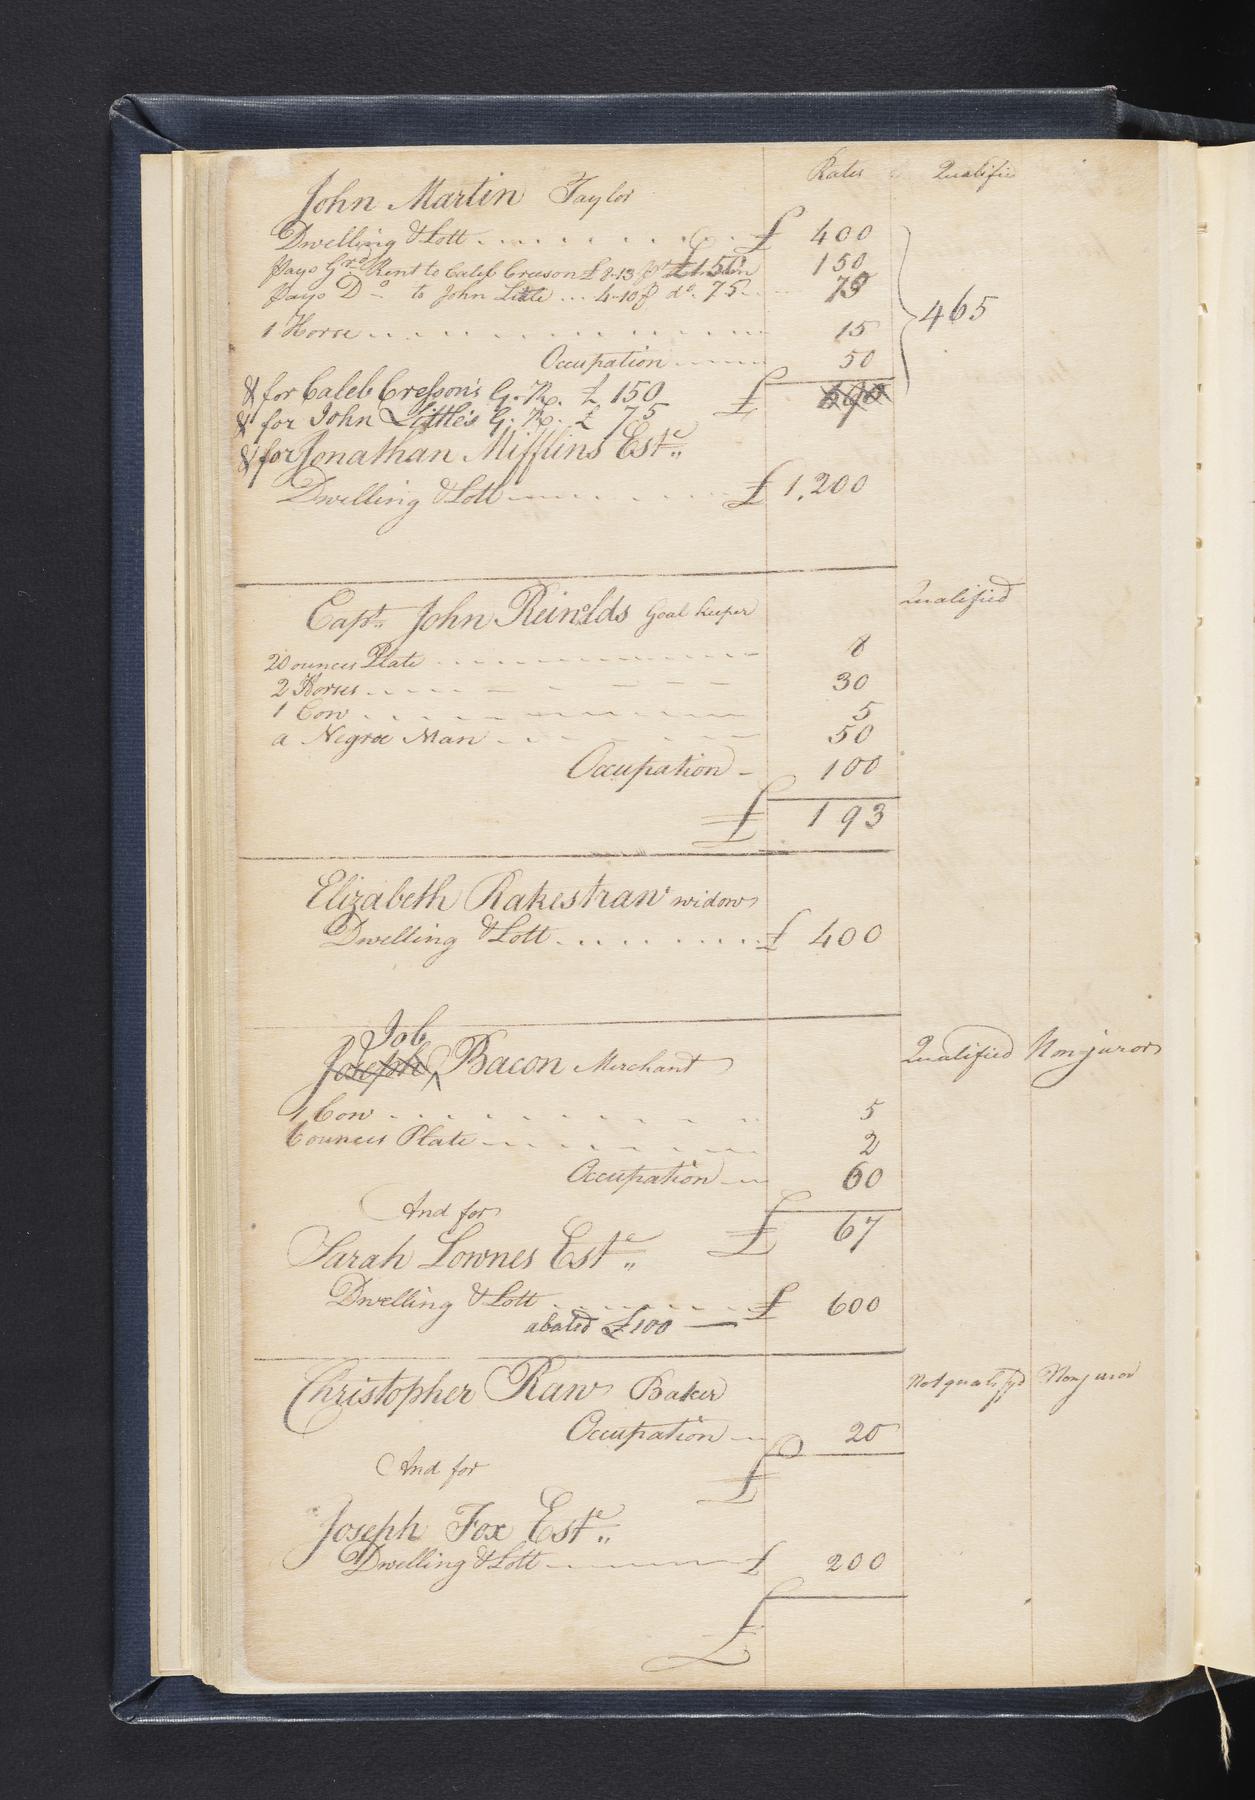 Rates Qualified
John Martin Taylor
Dwelling & Lott £ 400
Pays Grd Rent to Caleb Cresson £8-13 150
Pays Do to John Little ... 4-10 do. 75 75
1 Horse 15
465
Occupation 50
& for Caleb Cresson's G. R. £ 150 £
& for John Little's G. R. £ 75
& for Jonathan Mifflins Este
Dwelling & Lott £ 1,200
Capt John Reinolds Goal keeper Qualified
20 ounces Plate 8
2 Horses 30
1 Cow 5
a Negroe Man 50
Occupation 100
£ 193
Elizabeth Rakestraw widow
Dwelling & Lott £ 400
Job
Joseph ^ Bacon Merchant Qualified Nonjuror
1 Cow 5
6 ounces Plate 2
Occupation 60
And for £ 67
Sarah Lownes Este
Dwelling & Lott £ 600
abated £100
Christopher Raw Baker Not qualifyd Nonjuror
Occupation 20
And for £
Joseph Fox Este
Dwelling & Lott £ 200
£